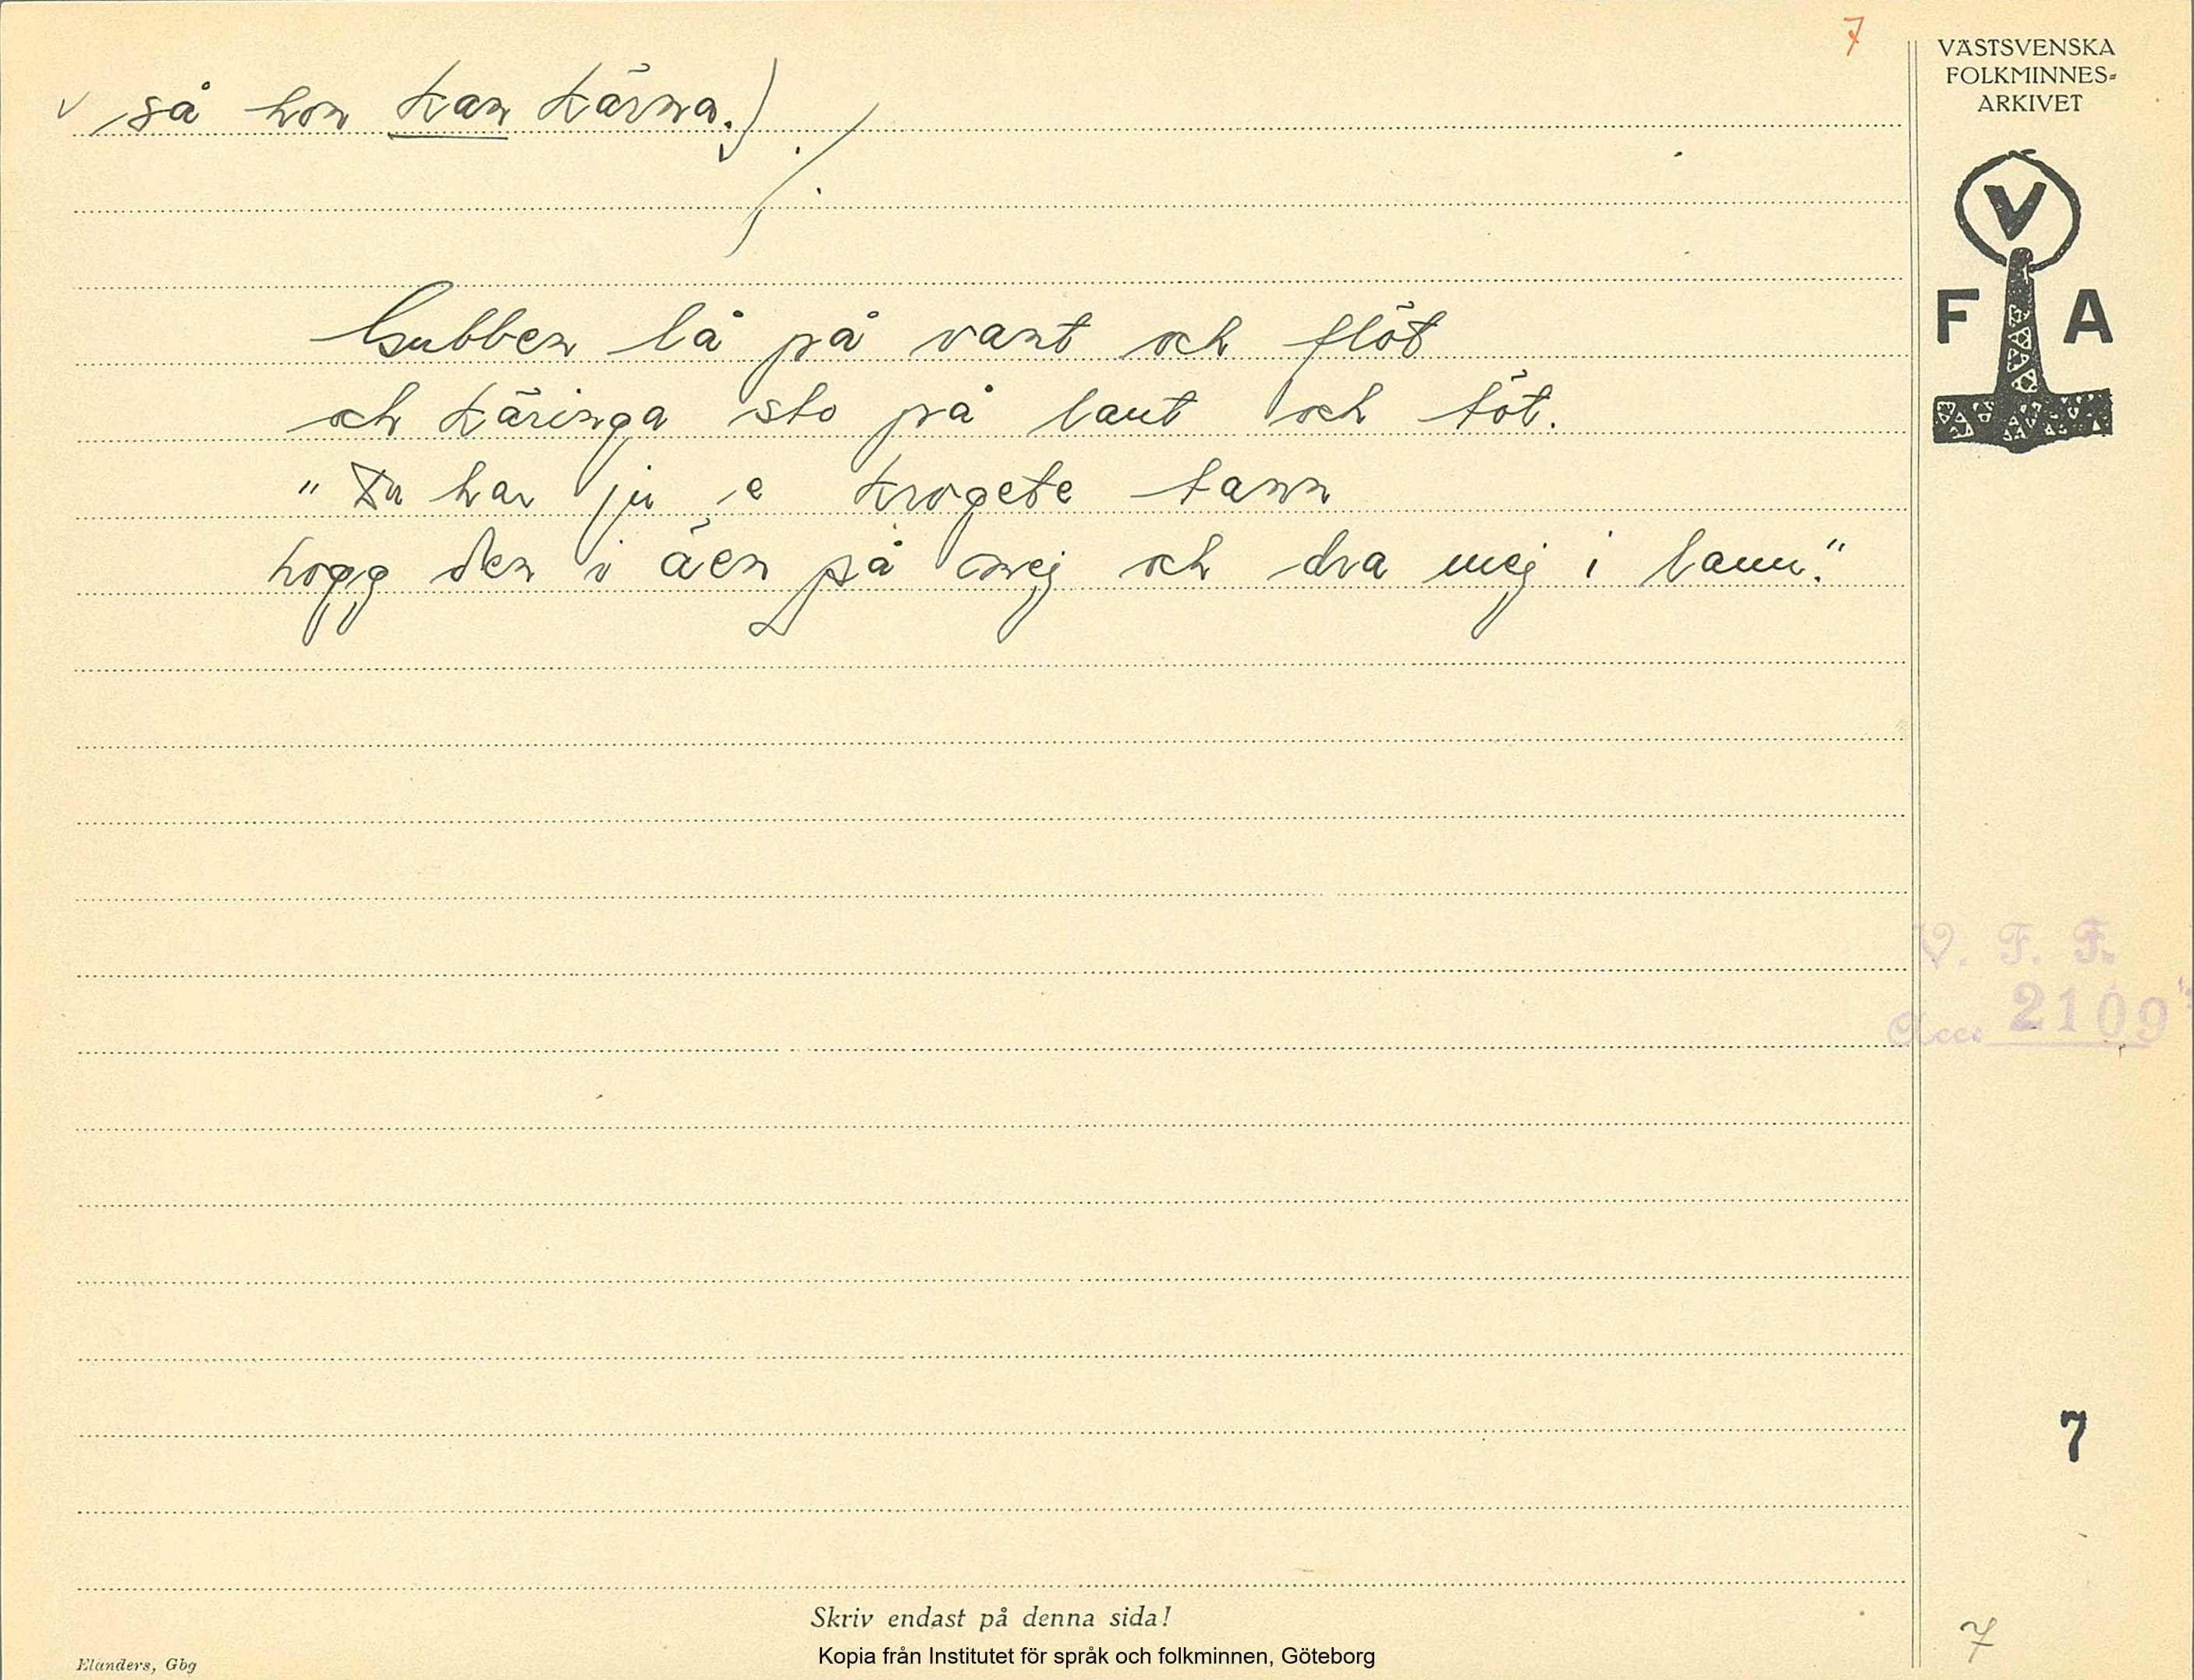 7
VÄSTSVENSKA
FOLKMINNES-
ARKIVET
V
F A
så hon kan kärna.)
Gubben lå på vant och flöt
och käringa sto på lant och töt.
"Du har ju e krogete tann
hogg den i äen på mej och dra mej i lann."
V. F. F.
Acc. 2109
7
7
Skriv endast på denna sida!
Kopia från Institutet för språk och folkminnen, Göteborg
Elanders, Gbg